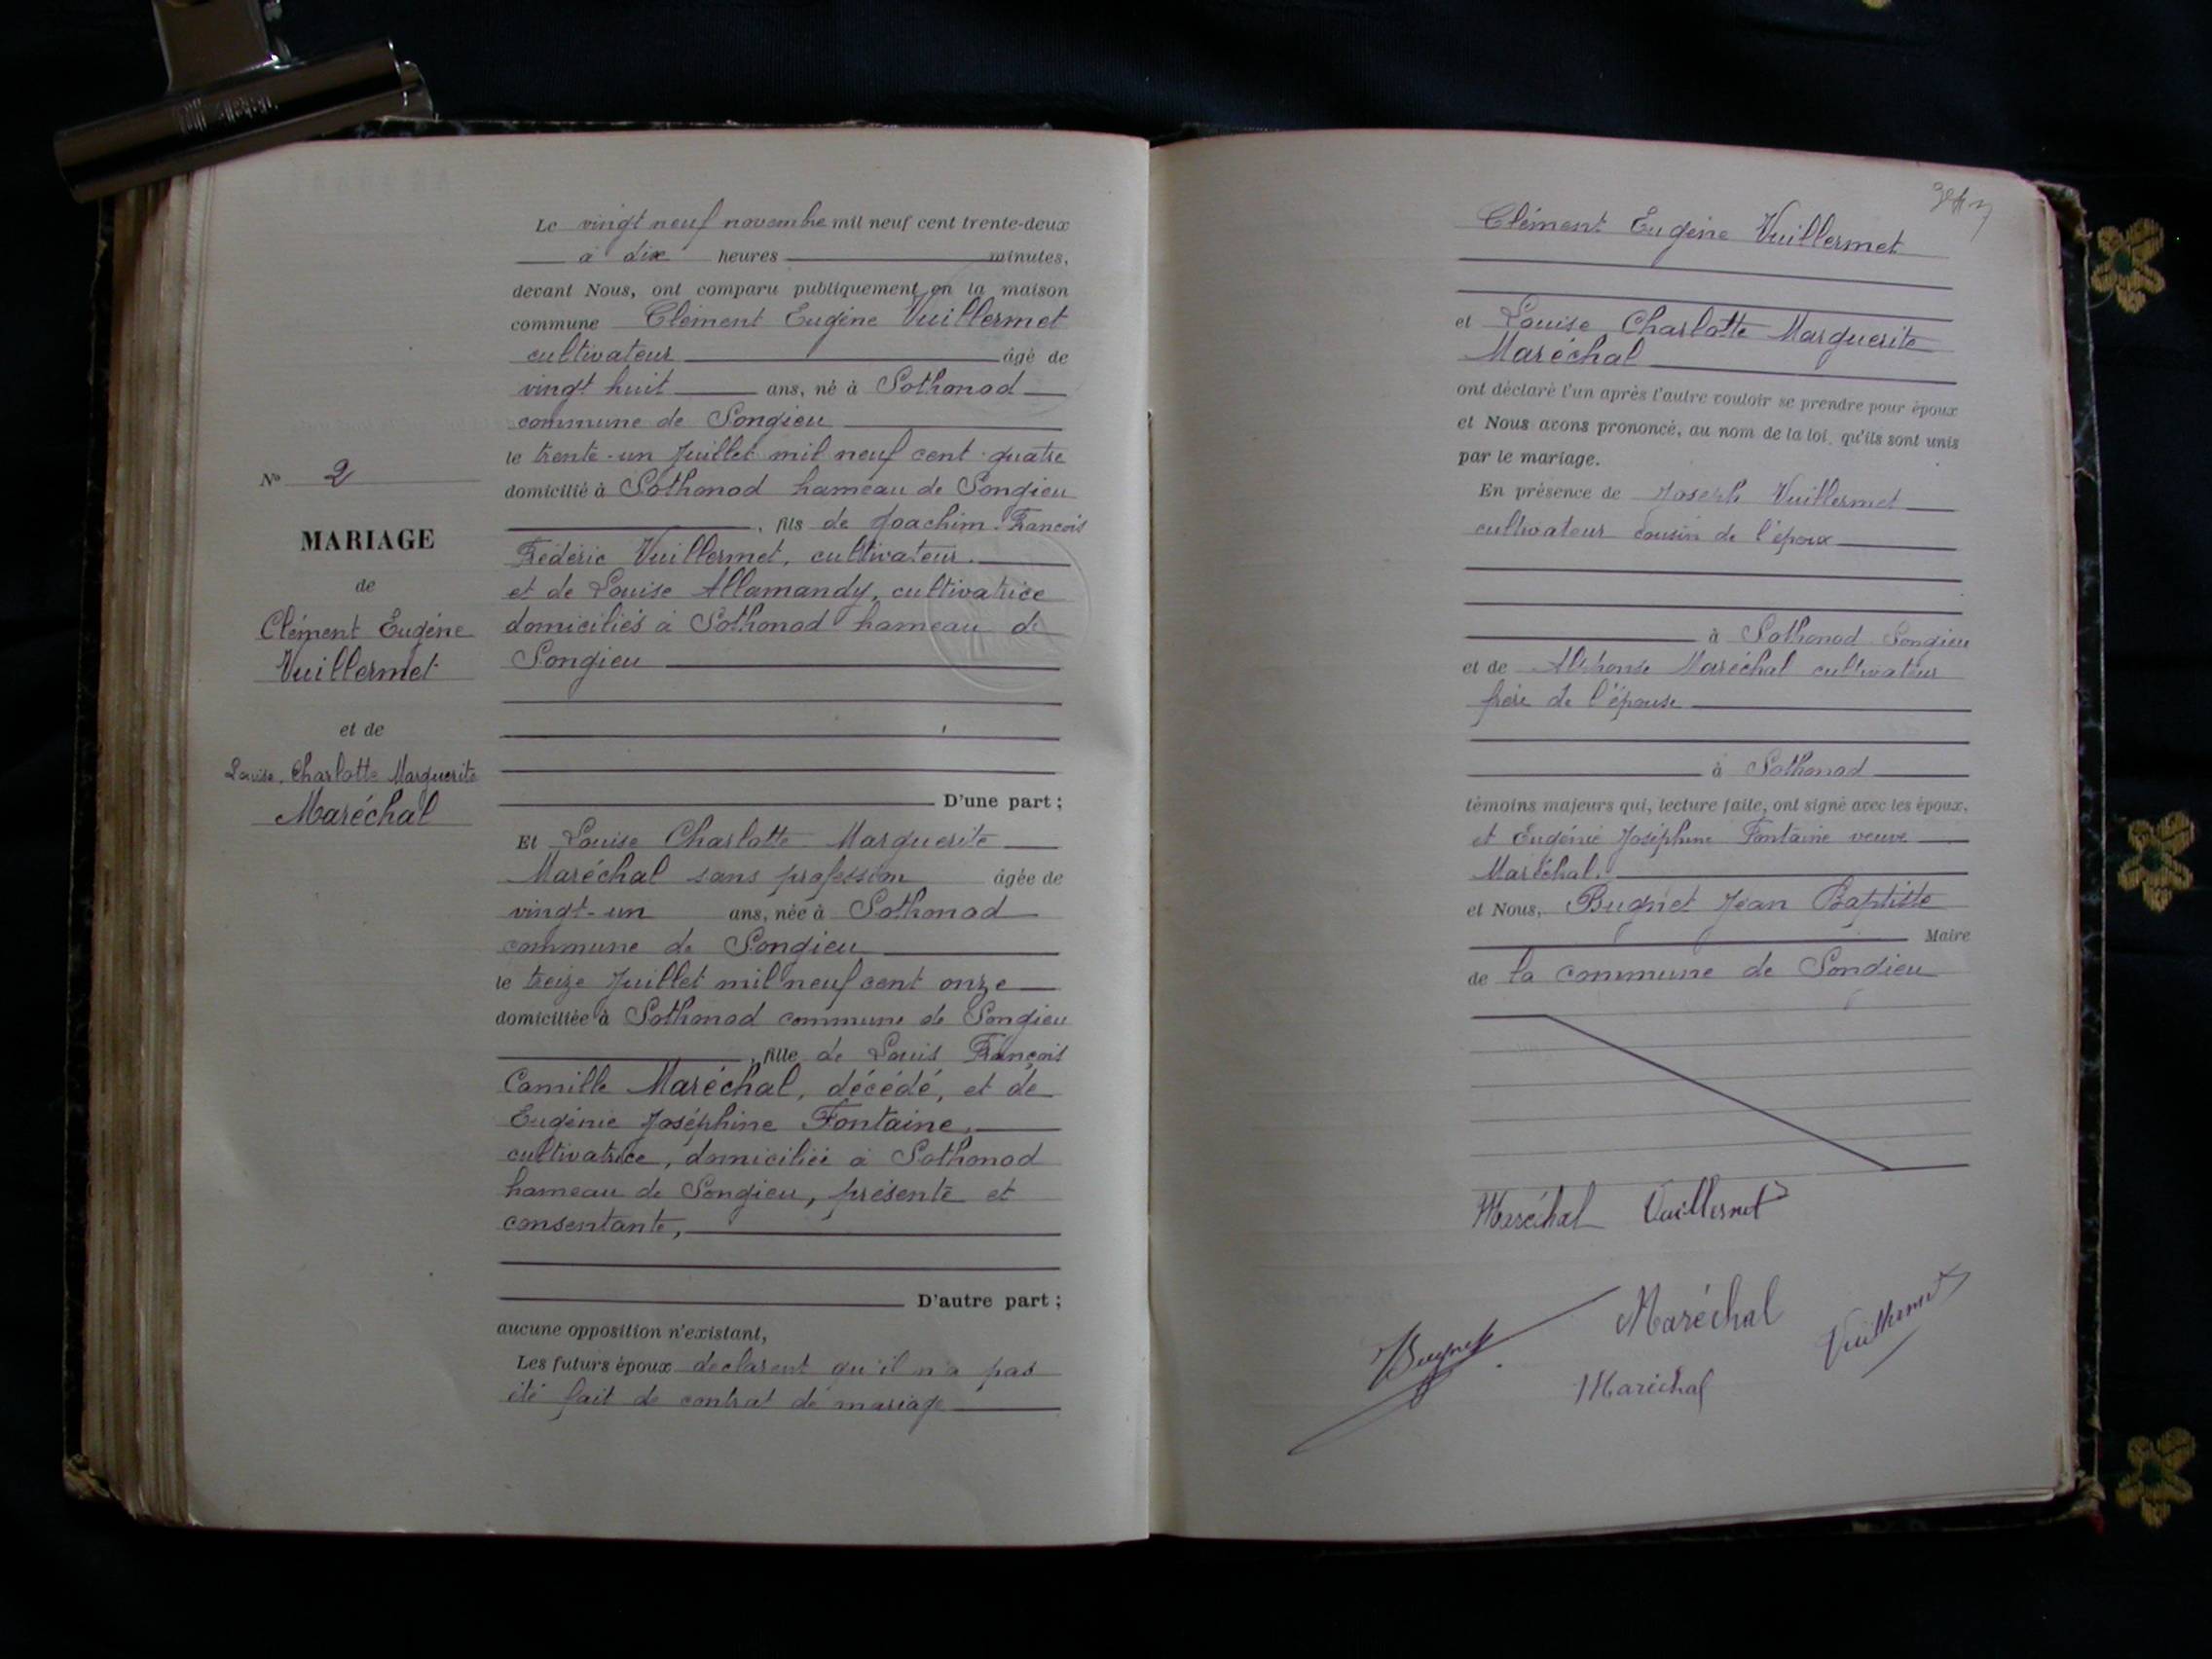 Le vingt neuf novembre mil neuf cent trente-deux
à dix heures minutes,
devant Nous, ont comparu publiquement en la maison
commune Clément Eugène Vuillermet
cultivateur âgé de
vingt huit ans, né à Sothonod
commune de Songieu
le trente-un Juillet mil neuf cent quatre
domicilié à Sothonod hameau de Songieu
, fils de Joachim François
Frédéric Vuillermet, cultivateur
et de Louise Allamandy, cultivatrice
domiciliés à Sothonod hameau de
Songieu
D'une part ;
Et Louise Charlotte Marguerite
Maréchal sans profession âgée de
vingt-un ans, née à Sothonod
commune de Songieu
le treize Juillet mil neuf cent onze
domiciliée à Sothonod commune de Songieu
, fille de Louis François
Camille Maréchal, décédé, et de
Eugénie Joséphine Fontaine,
cultivatrice, domiciliée à Sothonod
hameau de Songieu, présente et
consentante,
D'autre part ;
aucune opposition n'existant,
Les futurs époux declarent qu'il n'a pas
été fait de contrat de mariage
N° 2
MARIAGE
de
Clément Eugène
Vuillermet
et de
Louise, Charlotte Marguerite
Maréchal
Clément Eugène Vuillermet
et Louise Charlotte Marguerite
Maréchal
ont déclaré l'un après l'autre vouloir se prendre pour époux
et Nous avons prononcé, au nom de la loi, qu'ils sont unis
par le mariage.
En présence de Joseph Vuillermet
cultivateur cousin de l'époux
à Sothonod Songieu
et de Alphonse Maréchal cultivateur
frère de l'épouse
à Sothonod
témoins majeurs qui, lecture faite, ont signé avec les époux,
et Eugénie Joséphine Fontaine veuve
Maréchal.
et Nous, Bugnet Jean Baptiste
Maire
de la commune de Songieu
Maréchal Vuillermet
Maréchal
Vuillermet
Bugnet
Maréchal